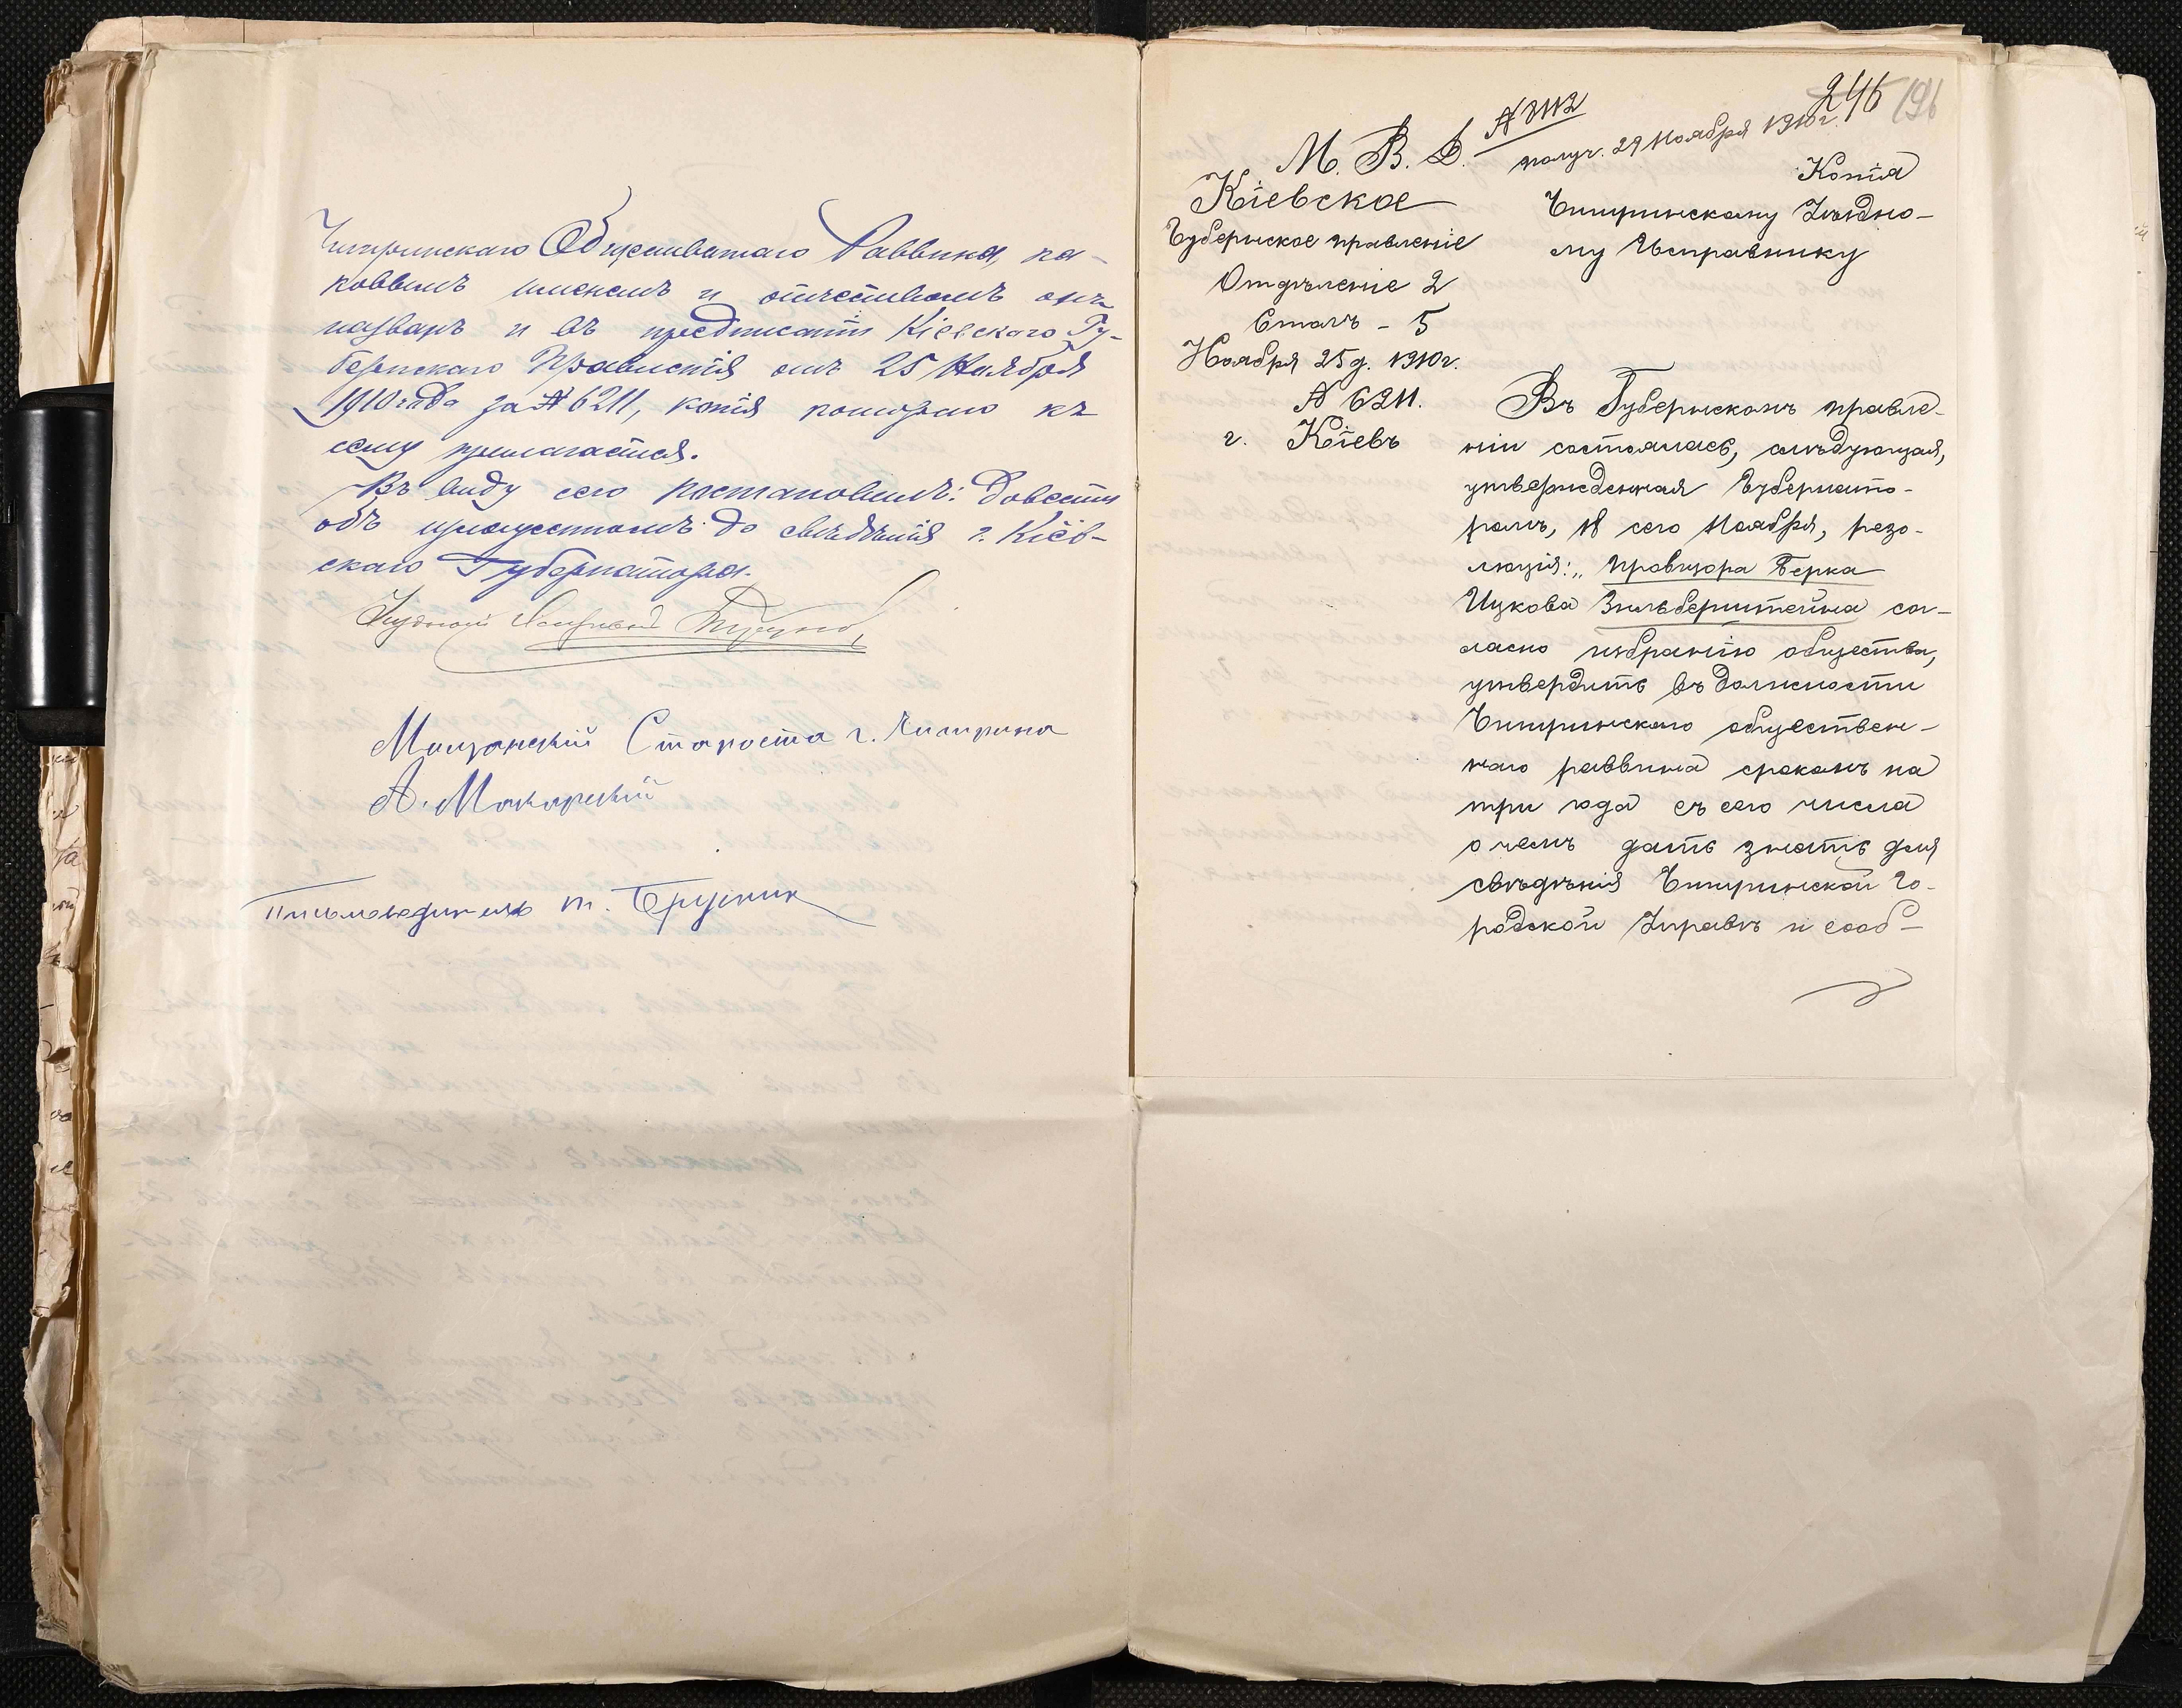 Чигринскаго Общественнаго Раввина, ка-
ковымъ именемъ и отчествомъ онъ
названъ и въ предписаніи Кіевскаго Гу-
бернскаго Правленія отъ 25 Ноября
1910 года за № 6211, копія котораго къ
сему прилагается.
Въ виду сего постановилъ: Довести
объ изложенномъ до свѣдѣнія г. Кіев-
скаго Губернатора.
Уѣздный
Мѣщанскій Староста г. Чигирина
А. Макарскій
Письмоводитель
246 196
№ 3112
получ. 29 Ноября 1910 г.
М. В. Д.
Кіевское
Губернское правленіе
Отдѣленіе 2
Столъ - 5
Ноября 25 д. 1910 г.
№ 6211.
г. Кіевъ
Копія
Чигринскому Уѣздно-
му Исправнику
Въ Губернскомъ правле-
ніи состоялась, слѣдующая,
утвержденная Губернато-
ромъ, 18 сего Ноября, резо-
люція: „Провизора Берка
Ицкова Зильберштейна со-
гласно избранію общества,
утвердить въ должности
Чигринскаго обществен-
наго раввина срокомъ на
три года съ сего числа
о чемъ дать знать для
свѣдѣнія Чигринской Го-
родской Управѣ и сооб-